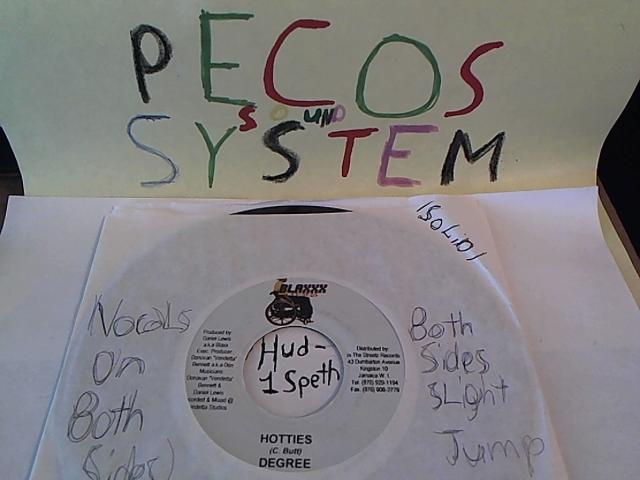 PECOS
SOUND
SYSTEM
!SoLiD!
Vocals
On
Both
Sides)
BLAXXX
Produced by
Daniel Lewis
a.k.a Blaxx
Exec. Producer
Donovan "Vendetta"
Bennett a.k.a Don
Musicians
Donovan "Vendetta"
Bennett &
Daniel Lewis
corded & Mixed @
ndetta Studios
Hud-
1 Speth
Distributed by:
In The Streetz Records
43 Dumbarton Avenue
Kingston 10
Jamaica W. I.
Tel. (876) 929-1194
Fax. (876) 908-3779
HOTTIES
(C. Butt)
DEGREE
Both
Sides
SLight
Jump